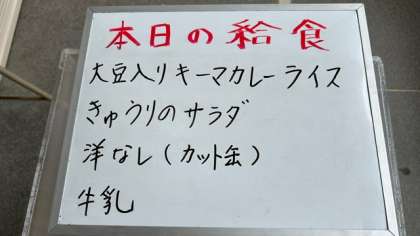 本日の給食
大豆入りキーマカレーライス
きゅうりのサラダ
洋なし(カット缶)
牛乳